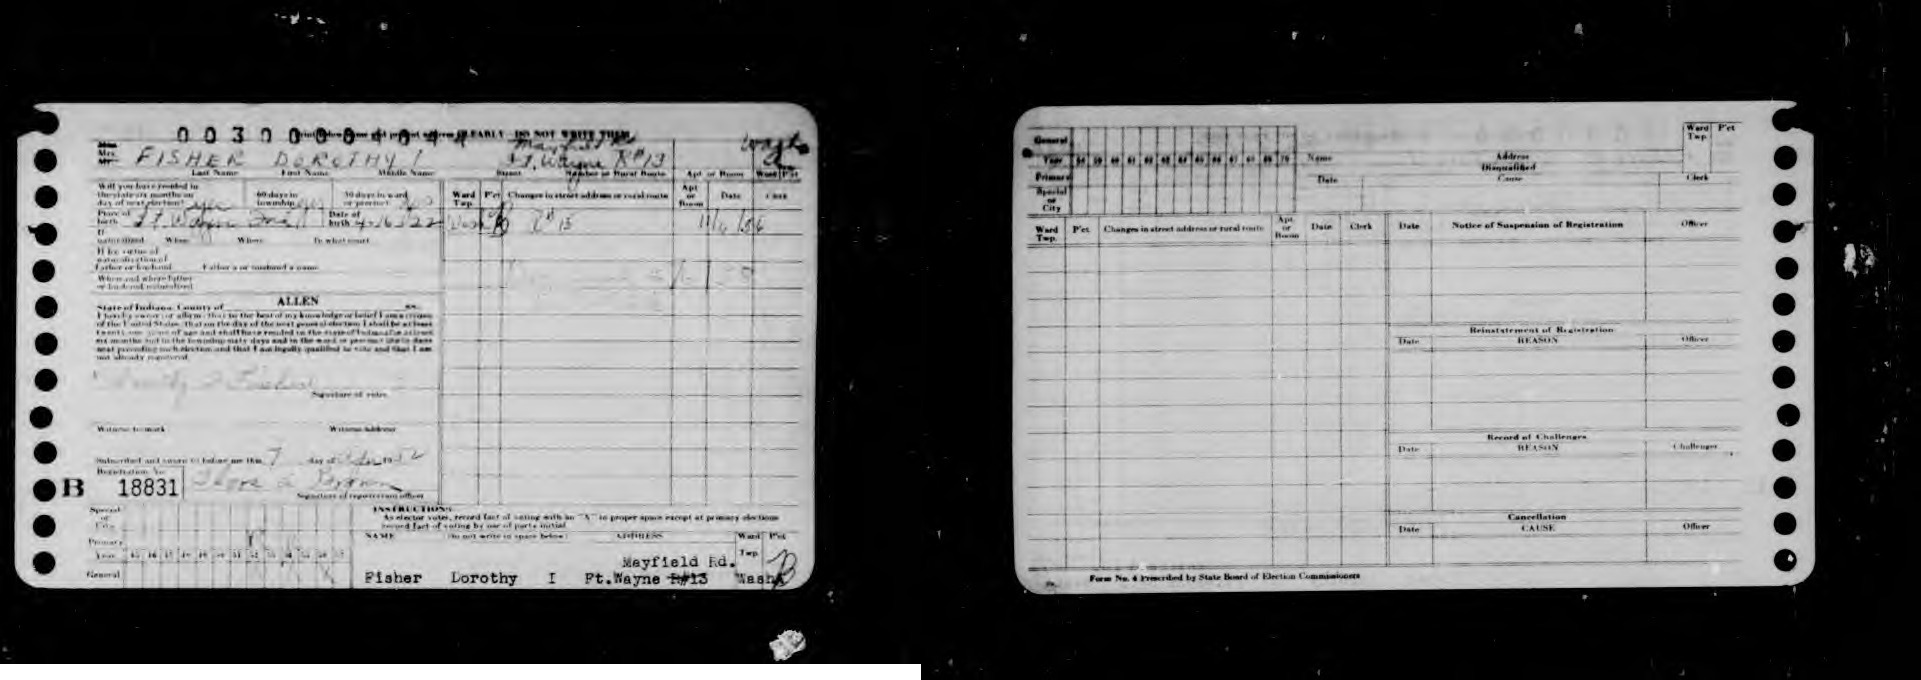 Print below name and present address CLEARLY - DO NOT WRITE THEM
Mrs. FISHER DOROTHY I Mayfield Rd. Ft. Wayne R#13 Wash A
Last Name First Name Middle Name Street Number or Rural Route Apt or Room Ward P'ct
Will you have resided in the state six months on day of next election? yes 60 days in township yes 30 days in ward or precinct yes
Ward Twp. P'ct Changes in street address or rural route Apt or Room Date Clerk
Place of birth Ft. Wayne Ind Date of birth
Wash B R# 13 11/6/56
If naturalized When Where In what court
If by virtue of naturalization of Father or husband Father's or husband's name
When and where father or husband naturalized
ALLEN
State of Indiana, County of ss.
I hereby swear or affirm that to the best of my knowledge or belief I am a citizen
of the United States, that on the day of the next general election I shall be at least
twenty-one years of age and shall have resided in the state of Indiana for at least
six months and in the township sixty days and in the ward or precinct thirty days
next preceding such election and that I am legally qualified to vote and that I am
not already registered.
Dorothy I Fisher
Signature of voter
Witness to mark Witness Address
Subscribed and sworn to before me this 7 day of 19 52
Registration No.
B 18831
Signature of registration officer
INSTRUCTIONS
As elector votes, record fact of voting with an "A" in proper space except at primary elections
record fact of voting by use of party initial
Special or City
Primary
Year
General
NAME (Do not write in space below) ADDRESS Ward Twp. P'ct
Mayfield Rd.
Fisher Dorothy I Ft.Wayne R#13 Wash B
General
Year 58 59 60 61 62 63 64 65 66 67 68 69 70
Primary
Special or City
Name Address Ward Twp. P'ct
Disqualified
Date Cause Clerk
Ward Twp. P'ct Changes in street address or rural route Apt. or Room Date Clerk
Date Notice of Suspension of Registration Officer
Reinstatement of Registration
Date REASON Officer
Record of Challenges
Date REASON Challenger
Cancellation
Date CAUSE Officer
Form No. 4 Prescribed by State Board of Election Commissioners